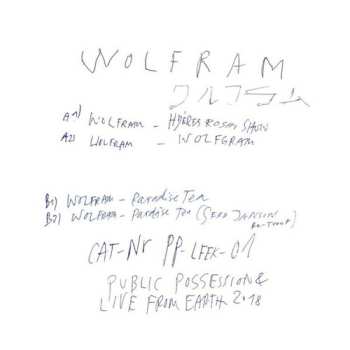 WOLFRAM
ワルフラム
A1) WOLFRAM - HYÈRES ROSAS SHOW
A2) WOLFRAM - WOLFGRAM
B1) WOLFRAM - Paradise Tea
B2) WOLFRAM - Paradise Tea (GERD JANSON
Re-Treat)
CAT-Nr PP-LFEK-01
PUBLIC POSSESSION &
LIVE FROM EARTH 2018